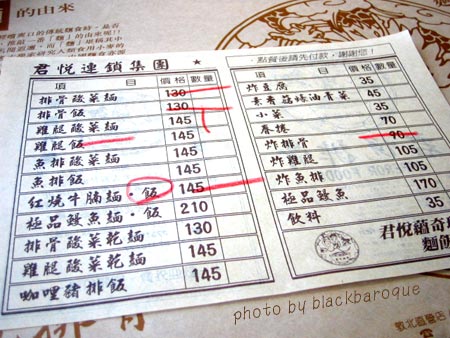 的由來
君悅連鎖集團
點餐後請先付款，謝謝您！
項 目 價格 數量
排骨酸菜麵 130
排骨飯 130
雞腿酸菜麵 145
雞腿飯 145
魚排酸菜麵 145
魚排飯 145
紅燒牛腩麵·飯 145
極品鰻魚麵·飯 210
排骨酸菜乾麵 130
雞腿酸菜乾麵 145
咖哩豬排飯 145
項 目 價格 數量
炸豆腐 35
素香菇蠔油青菜 45
小菜 35
春捲 70
炸排骨 90
炸雞腿 105
炸魚排 105
極品鰻魚 170
飲料 35
君悅
麵飯
photo by blackbaroque